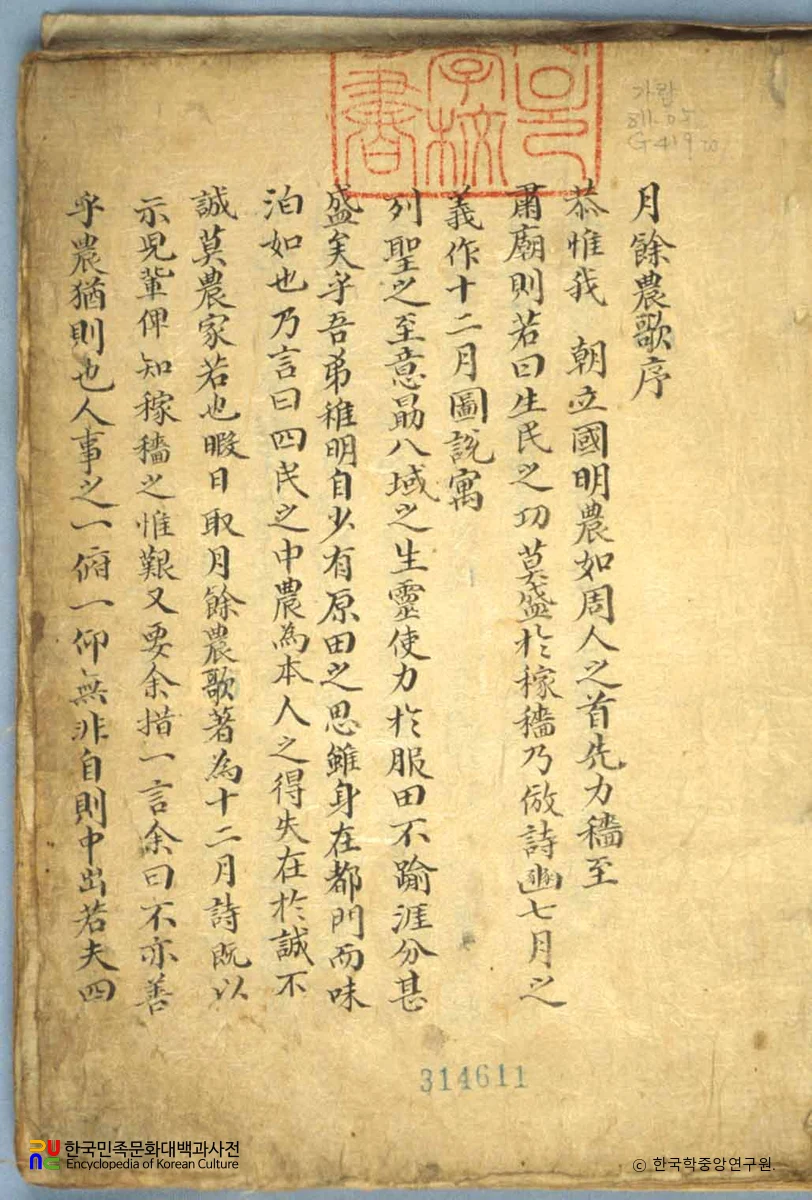 月餘農歌序
恭惟我 朝立國明農如周人之首先力穡至
肅廟則若曰生民之功莫盛於稼穡乃倣詩豳七月之
義作十二月圖說寓
列聖之至意勗八域之生靈使力於服田不踰涯分甚
盛矣乎吾弟稚明自少有原田之思雖身在都門而味
泊如也乃言曰四民之中農為本人之得失在於誠不
誠莫農家若也暇日取月餘農歌著為十二月詩旣以
示兒輩俾知稼穡之惟艱又要余措一言余曰不亦善
乎農猶則也人事之一俯一仰無非自則中出若夫四
가람
811.05
G419
314611
한국민족문화대백과사전
Encyclopedia of Korean Culture
ⓒ 한국학중앙연구원.